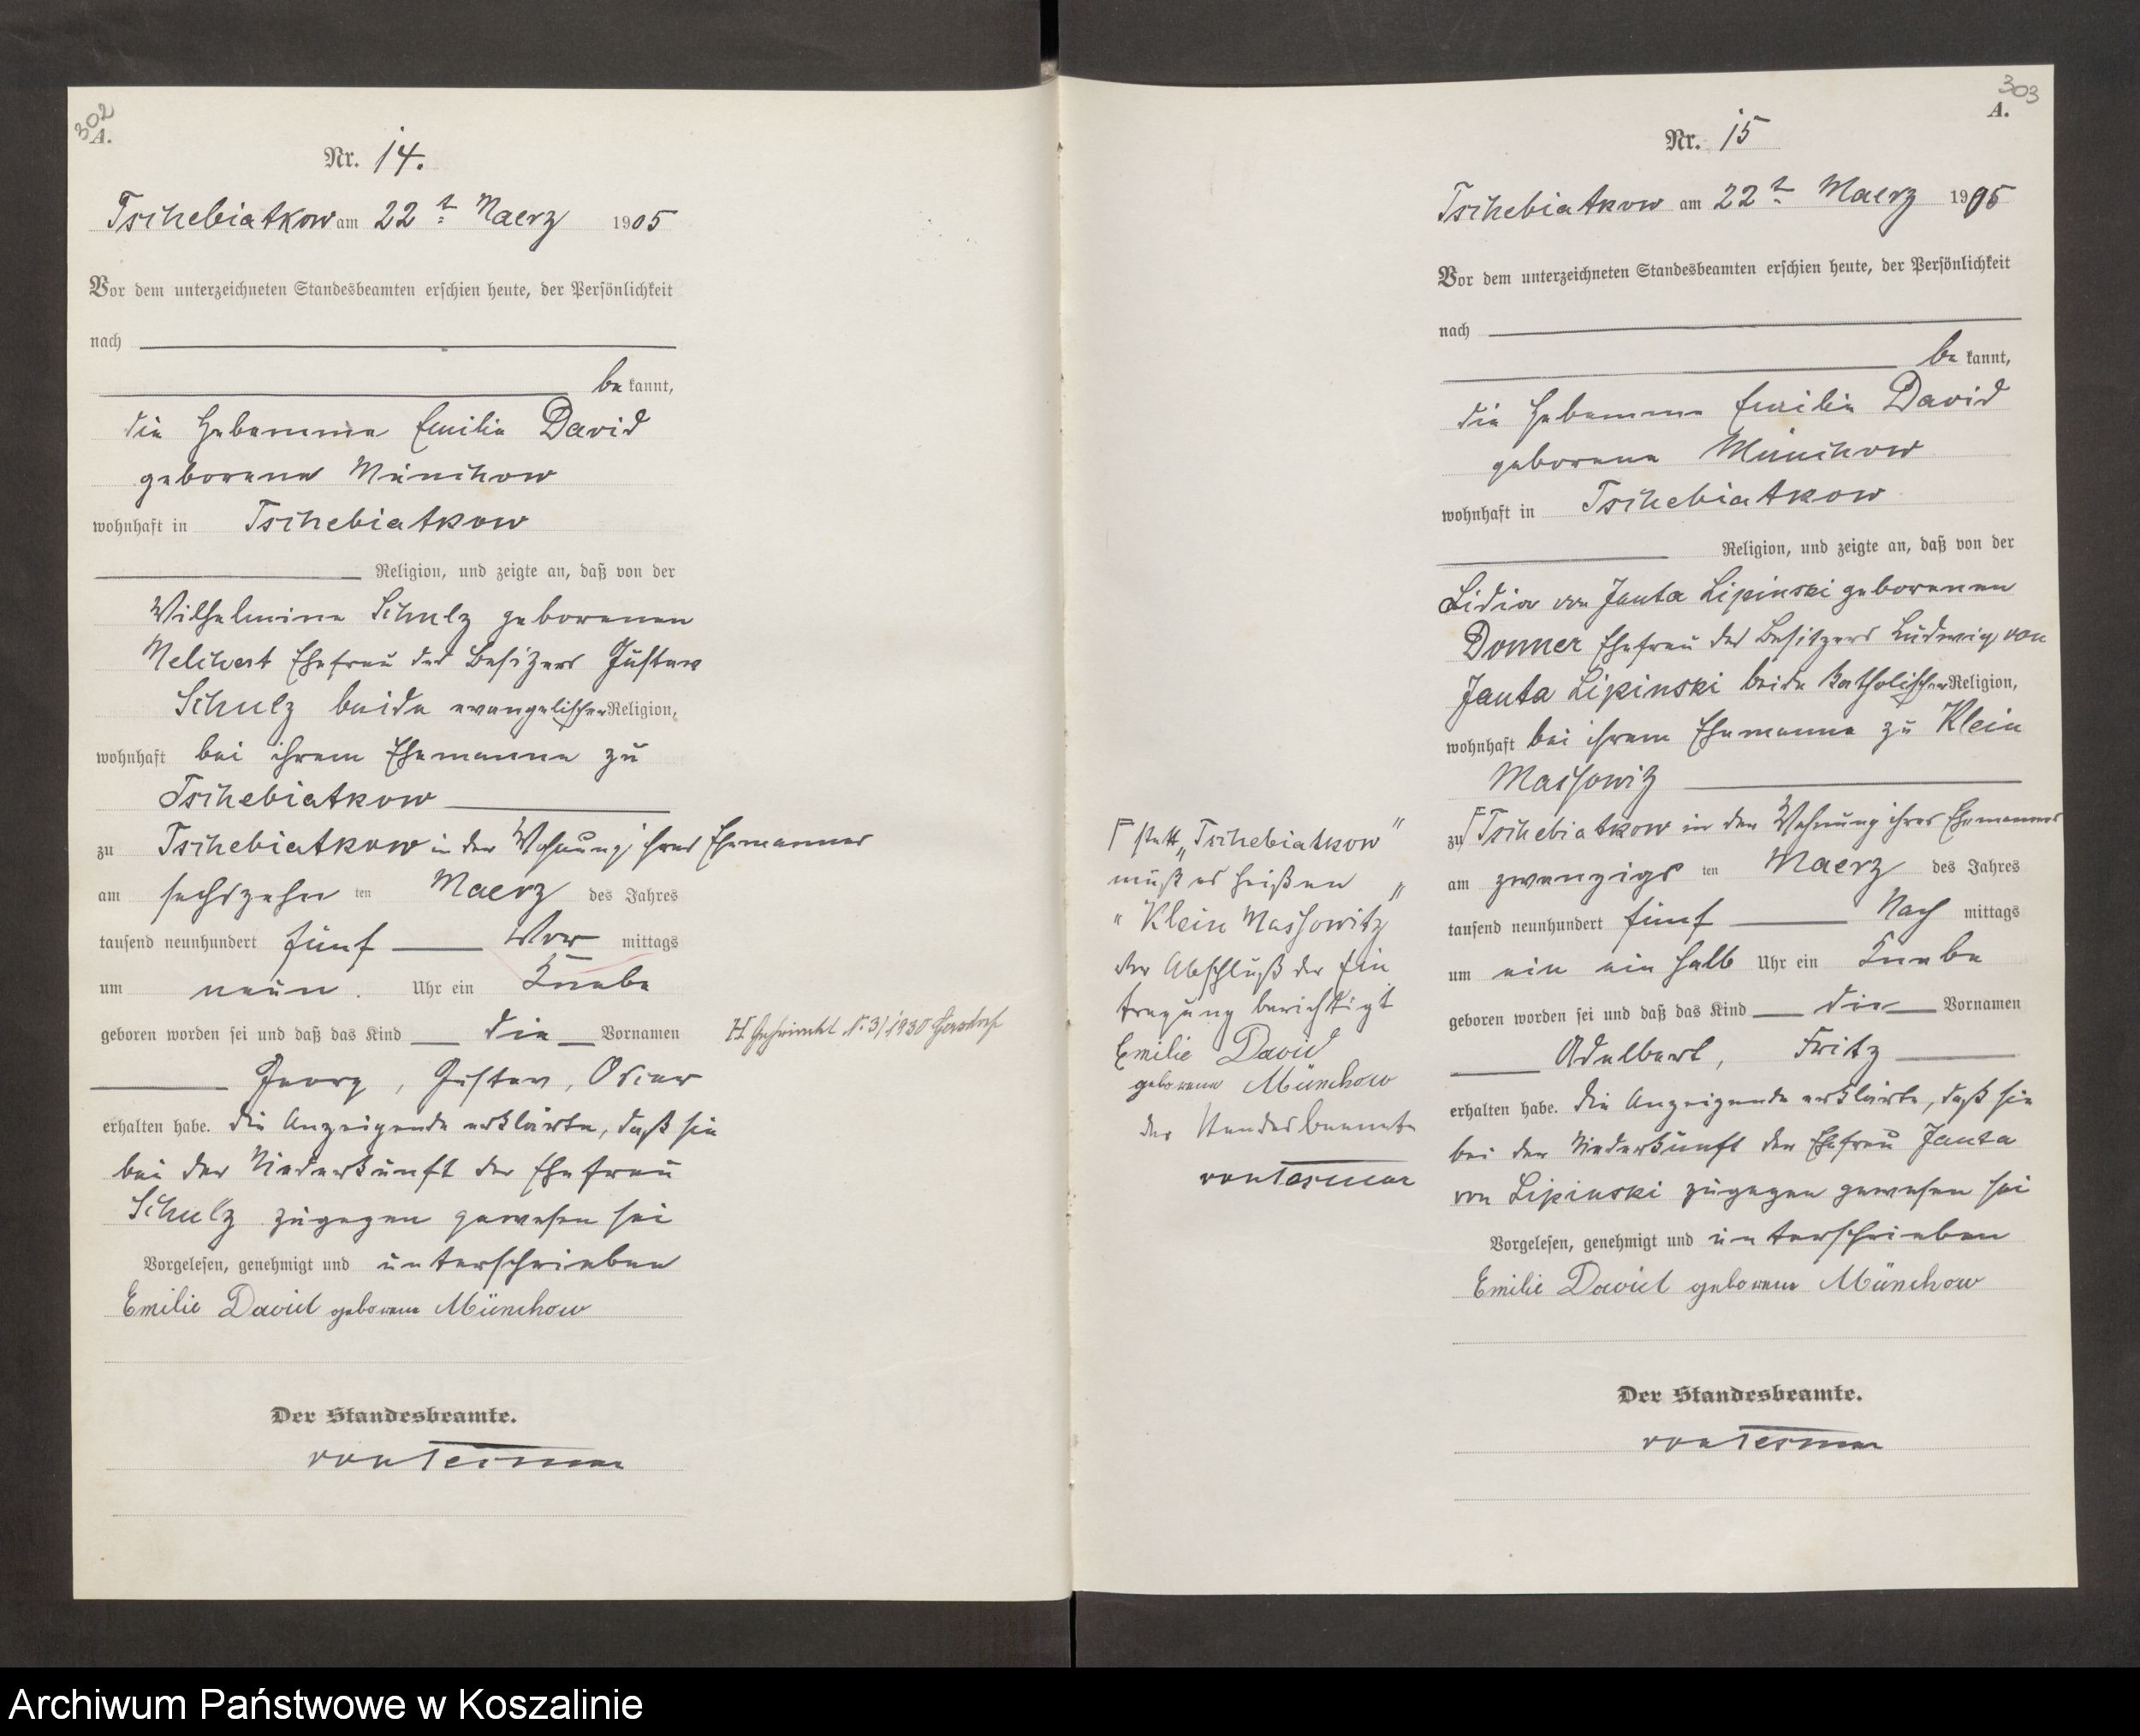 302
A.
Nr. 14.
Tschebiatkow am 22t Maerz 1905
Vor dem unterzeichneten Standesbeamten erschien heute, der Persönlichkeit
nach
be kannt,
die Hebamme Emilie David
geborene Münchow
wohnhaft in Tschebiatkow
Religion, und zeigte an, daß von der
Wilhelmine Schulz geborenen
Melchert Ehefrau des Besitzers Gustav
Schulz beide evangelischer Religion,
wohnhaft bei ihrem Ehemanne zu
Tschebiatkow
zu Tschebiatkow in der Wohnung ihres Ehemannes
am sechszehn ten Maerz des Jahres
tausend neunhundert fünf Vor mittags
um neun Uhr ein Knabe
geboren worden sei und daß das Kind die Vornamen
Georg, Gustav, Oscar
erhalten habe. die Anzeigende erklärte, daß sie
bei der Niederkunft der Ehefrau
Schulz zugegen gewesen sei
Vorgelesen, genehmigt und unterschrieben
Emilie David geborene Münchow
Der Standesbeamte.
H. Geheirathet Nr. 3/1930
303
A.
Nr. 15
Tschebiatkow am 22t Maerz 1905
Vor dem unterzeichneten Standesbeamten erschien heute, der Persönlichkeit
nach
be kannt,
die Hebamme Emilie David
geborene Münchow
wohnhaft in Tschebiatkow
Religion, und zeigte an, daß von der
Lidia von Janta Lipinski geborenen
Donner Ehefrau des Besitzers Ludwig von
Janta Lipinski beide katholischer Religion,
wohnhaft bei ihrem Ehemanne zu Klein
Massowitz
zu Tschebiatkow in der Wohnung ihres Ehemannes
am zwanzigs ten Maerz des Jahres
tausend neunhundert fünf Nach mittags
um ein ein halb Uhr ein Knabe
geboren worden sei und daß das Kind die Vornamen
Adelbert, Fritz
erhalten habe. die Anzeigende erklärte, daß sie
bei der Niederkunft der Ehefrau Janta
von Lipinski zugegen gewesen sei
Vorgelesen, genehmigt und unterschrieben
Emilie David geborene Münchow
Der Standesbeamte.
statt „Tschebiatkow"
muß es heißen
"Klein Massowitz"
vor Abschluß der Ein
tragung berichtigt
Emilie David
geborene Münchow
der Standesbeamte
Archiwum Państwowe w Koszalinie